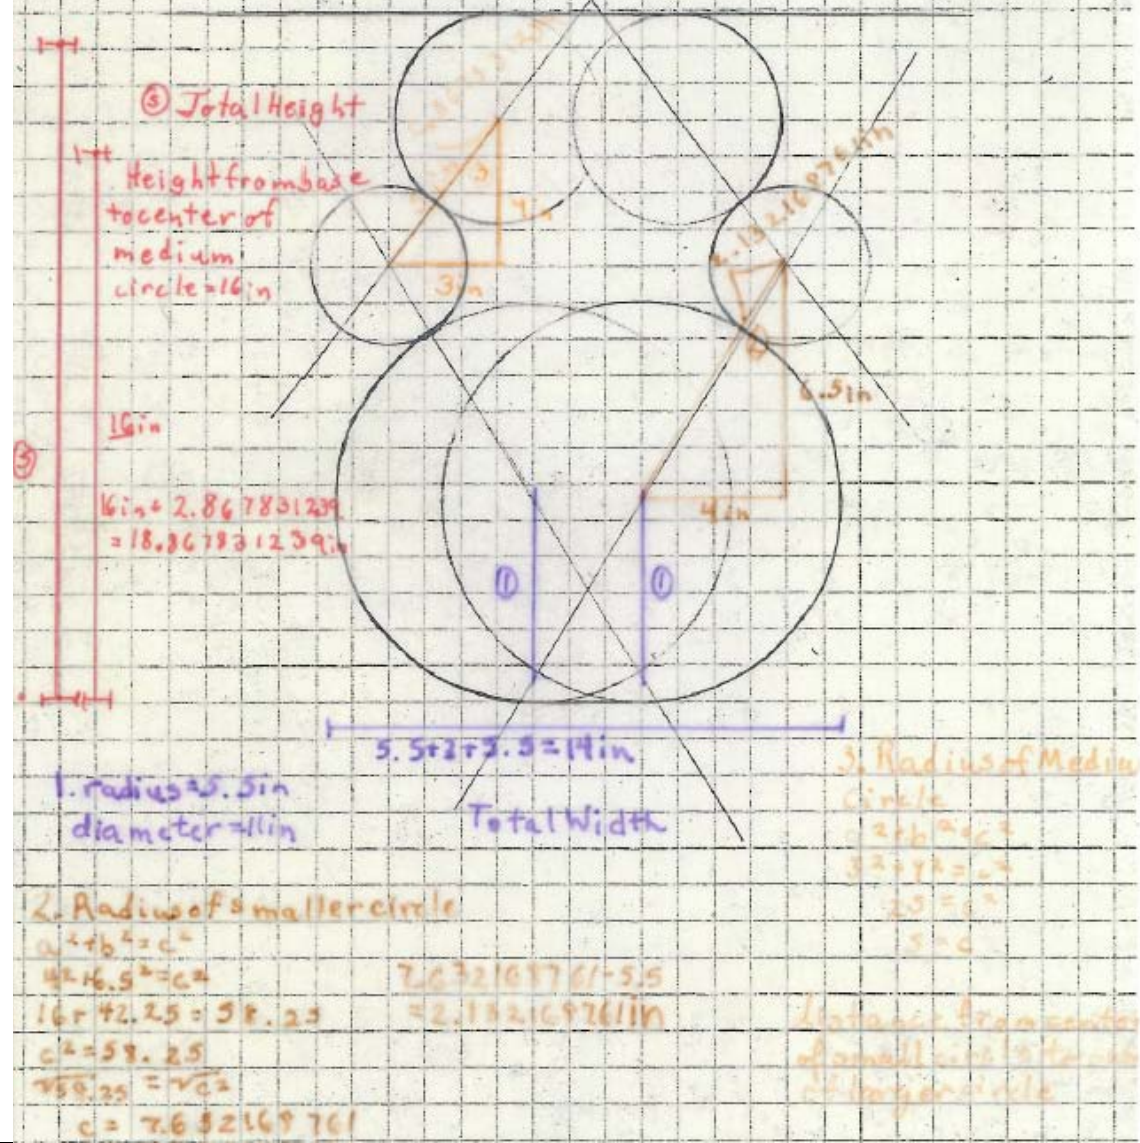 ⑤ Total Height
Height from base
to center of
medium
circle = 16in
16in
③
16in + 2.867831239
= 18.867831239in
4in
3in
2.132168761in
6.5in
4in
①
①
5.5+3+5.5=14in
Total Width
1. radius = 5.5in
diameter = 11in
2. Radius of smaller circle
a²+b²=c²
4²+6.5²=c²
16+42.25=58.25
c²=58.25
√58.25 = √c²
c = 7.632168761
7.632168761-5.5
=2.132168761in
3. Radius of Mediu
circle
a²+b²=c²
3²+4²=c²
25=c²
5=c
Distance from center
of small circle to
of larger circle